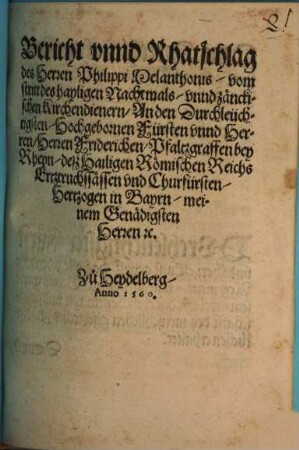 Bericht vnnd Rhatschlag
des Herren Philippi Melanthonis - vom
stritt des hayligen Nachtmals - vnnd zäncki-
schen Kirchendienern / An den Durchleüch-
tigsten - Hochgebornen Fürsten vnnd Her-
ren / Herren Friderichen / Pfaltzgraffen bey
Rheyn - deß Hailigen Römischen Reichs
Ertztruchsässen vnd Churfürsten -
Hertzogen in Bayrn - mei-
nem Genädigsten
Herren ꝛc.
Zů Heydelberg -
Anno 1560.